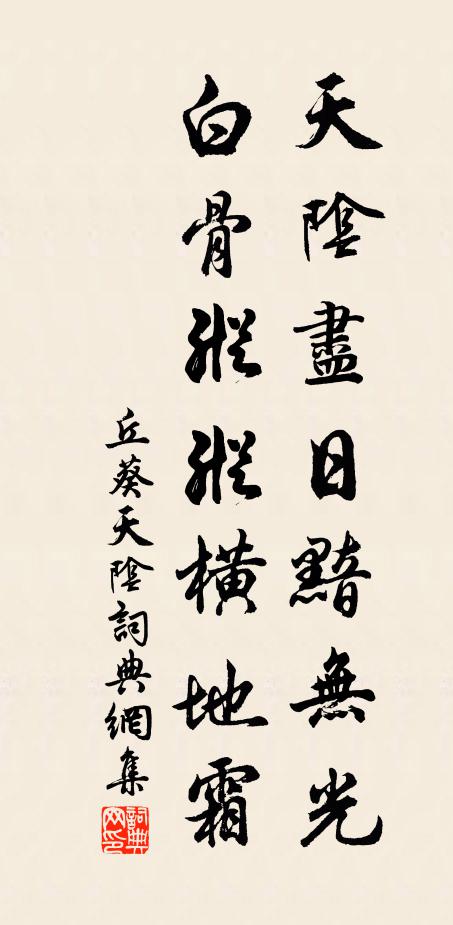 天陰盡日黯無光
白骨縱縱橫地霜
丘葵天陰詞典網集
詞典网印